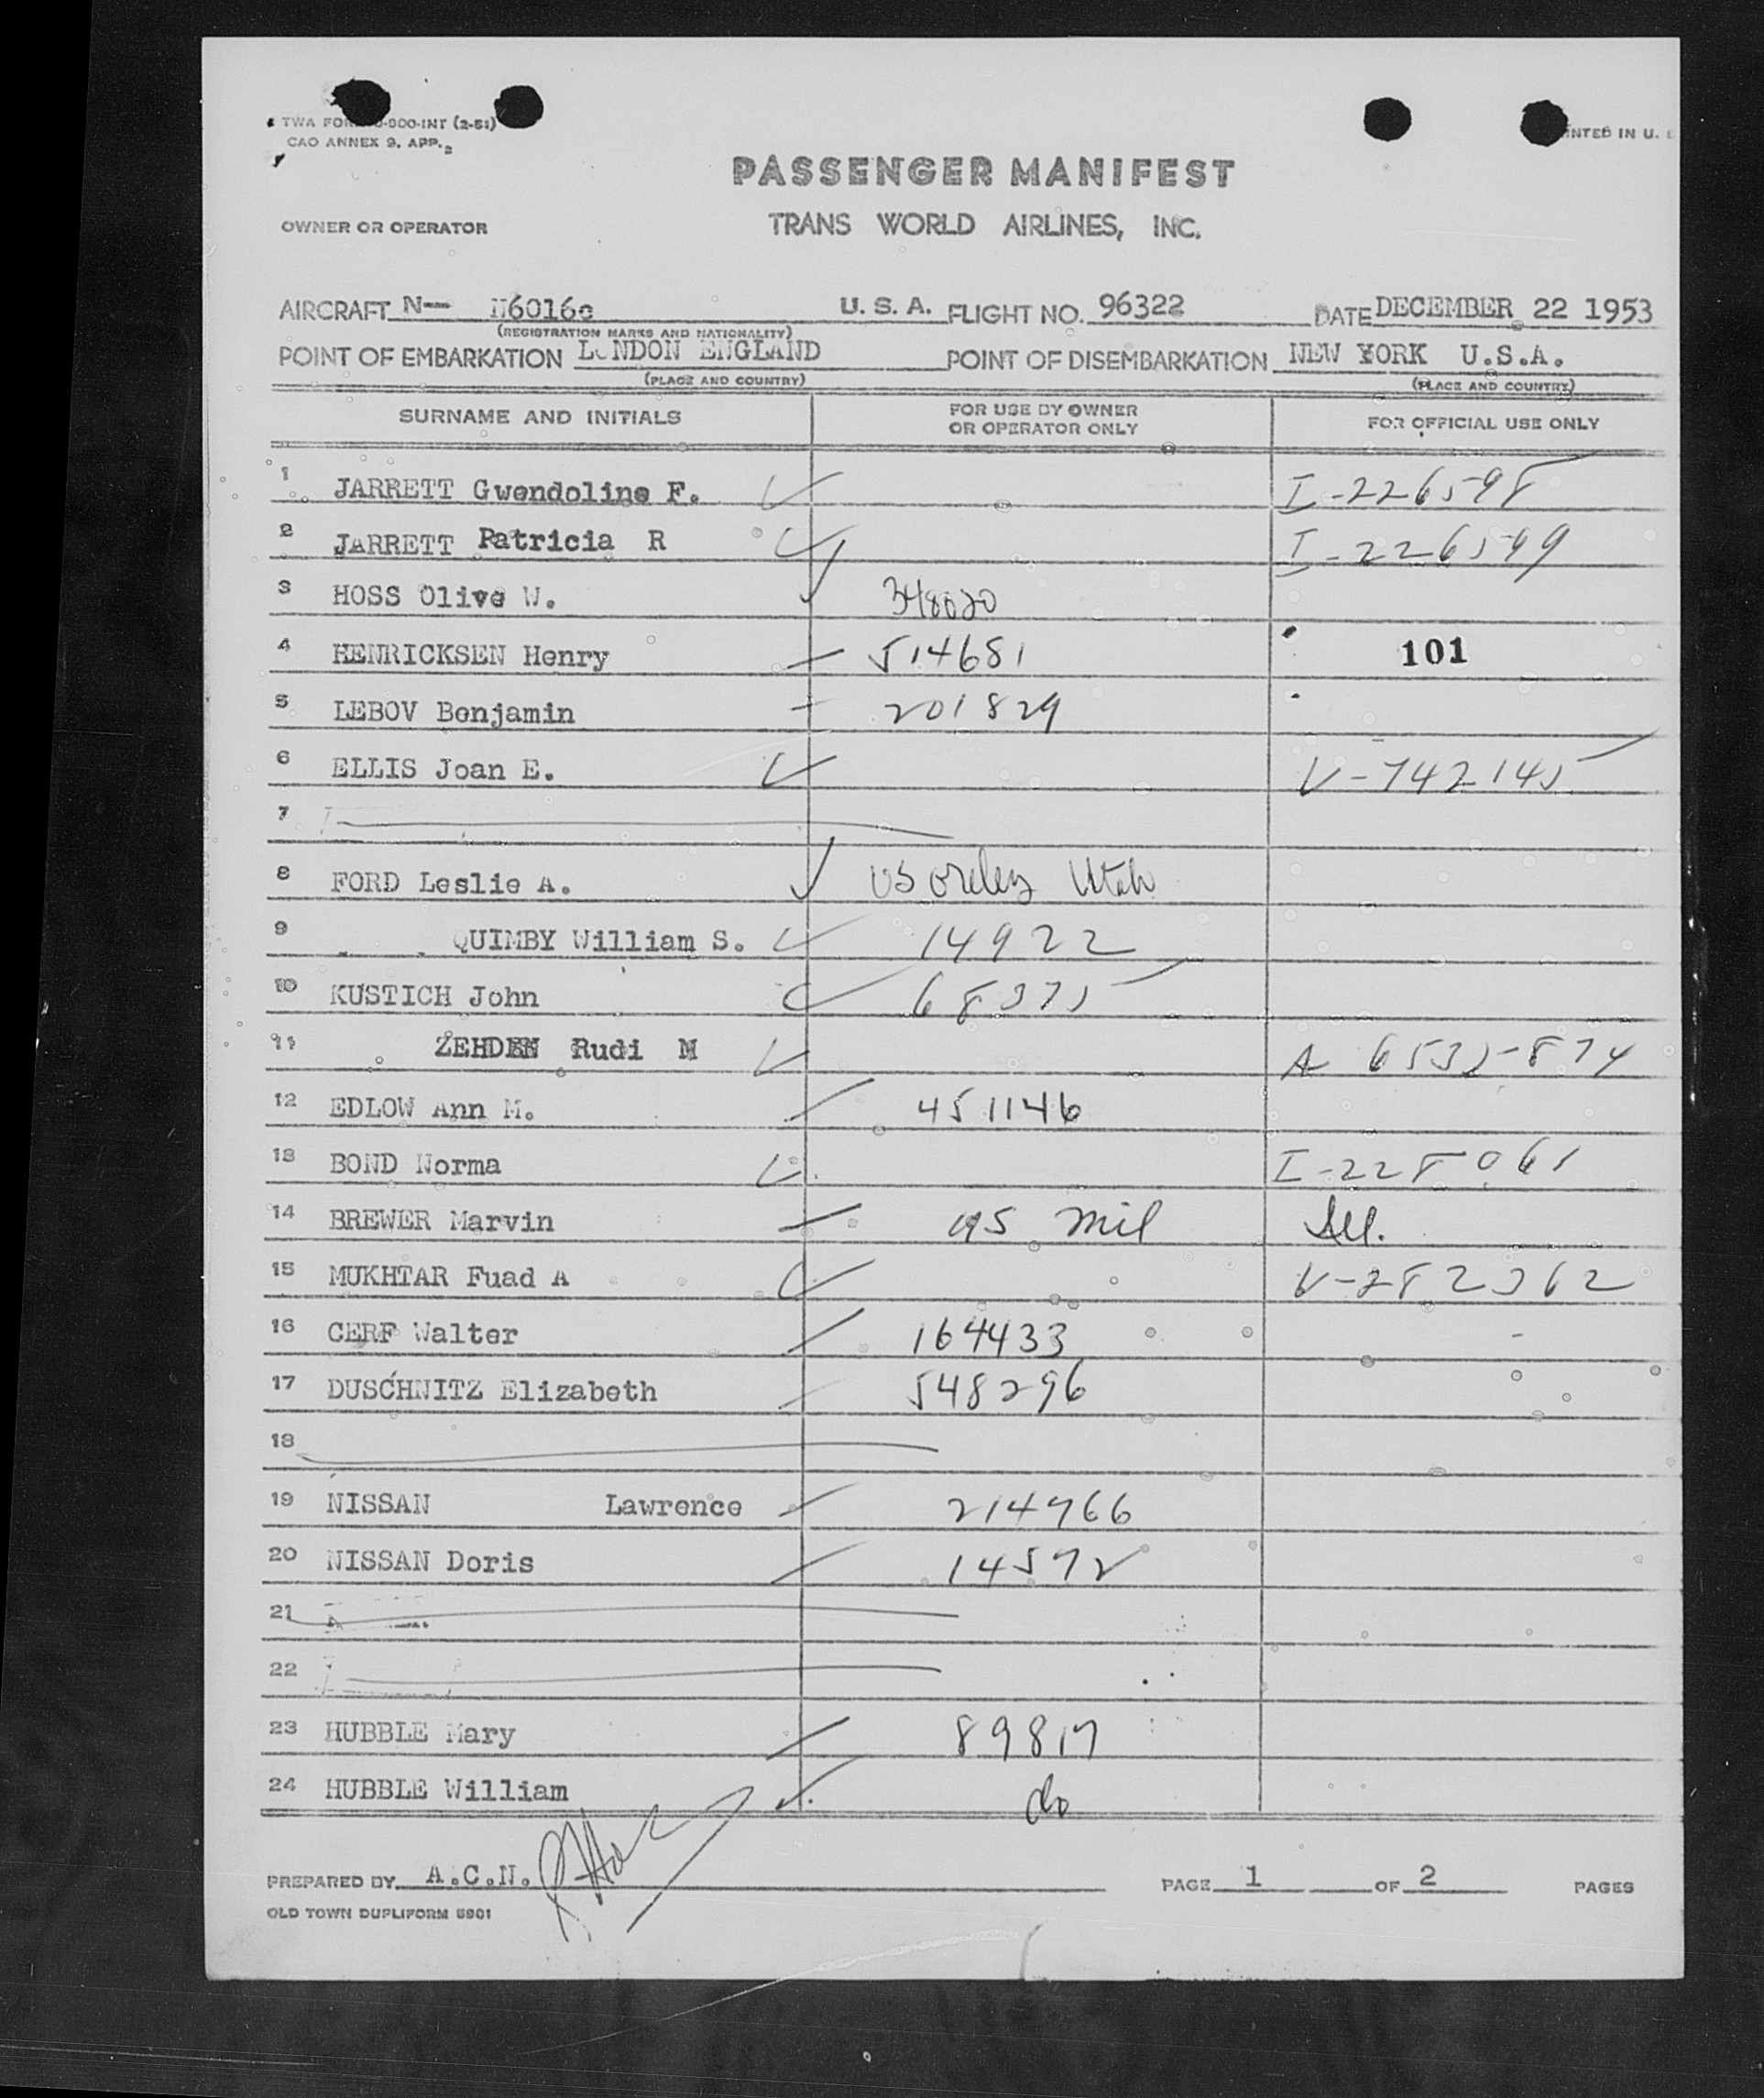 TWA FORM -900-INT (2-51)
CAO ANNEX 9. APP. 2
PRINTED IN U.
PASSENGER MANIFEST
OWNER OR OPERATOR TRANS WORLD AIRLINES, INC.
AIRCRAFT N— N6016c U. S. A. FLIGHT NO. 96322 DATE DECEMBER 22 1953
(REGISTRATION MARKS AND NATIONALITY)
POINT OF EMBARKATION LONDON ENGLAND POINT OF DISEMBARKATION NEW YORK U.S.A.
(PLACE AND COUNTRY) (PLACE AND COUNTRY)
SURNAME AND INITIALS FOR USE BY OWNER OR OPERATOR ONLY FOR OFFICIAL USE ONLY
1 JARRETT Gwendoline F. I-226598
2 JARRETT Patricia R I-226599
3 HOSS Olive W. 348020
4 HENRICKSEN Henry 514681 101
5 LEBOV Benjamin 201829
6 ELLIS Joan E. V-742145
7
8 FORD Leslie A. US Utah
9 QUIMBY William S. 14922
10 KUSTICH John 68375
11 ZEHDEN Rudi M A 6532-874
12 EDLOW Ann M. 451146
13 BOND Norma I-228061
14 BREWER Marvin US Mil
15 MUKHTAR Fuad A V-282362
16 CERF Walter 164433
17 DUSCHNITZ Elizabeth 548296
18
19 NISSAN Lawrence 214966
20 NISSAN Doris 14572
21
22
23 HUBBLE Mary 89817
24 HUBBLE William do
PREPARED BY A.C.N. PAGE 1 OF 2 PAGES
OLD TOWN DUPLIFORM 5901